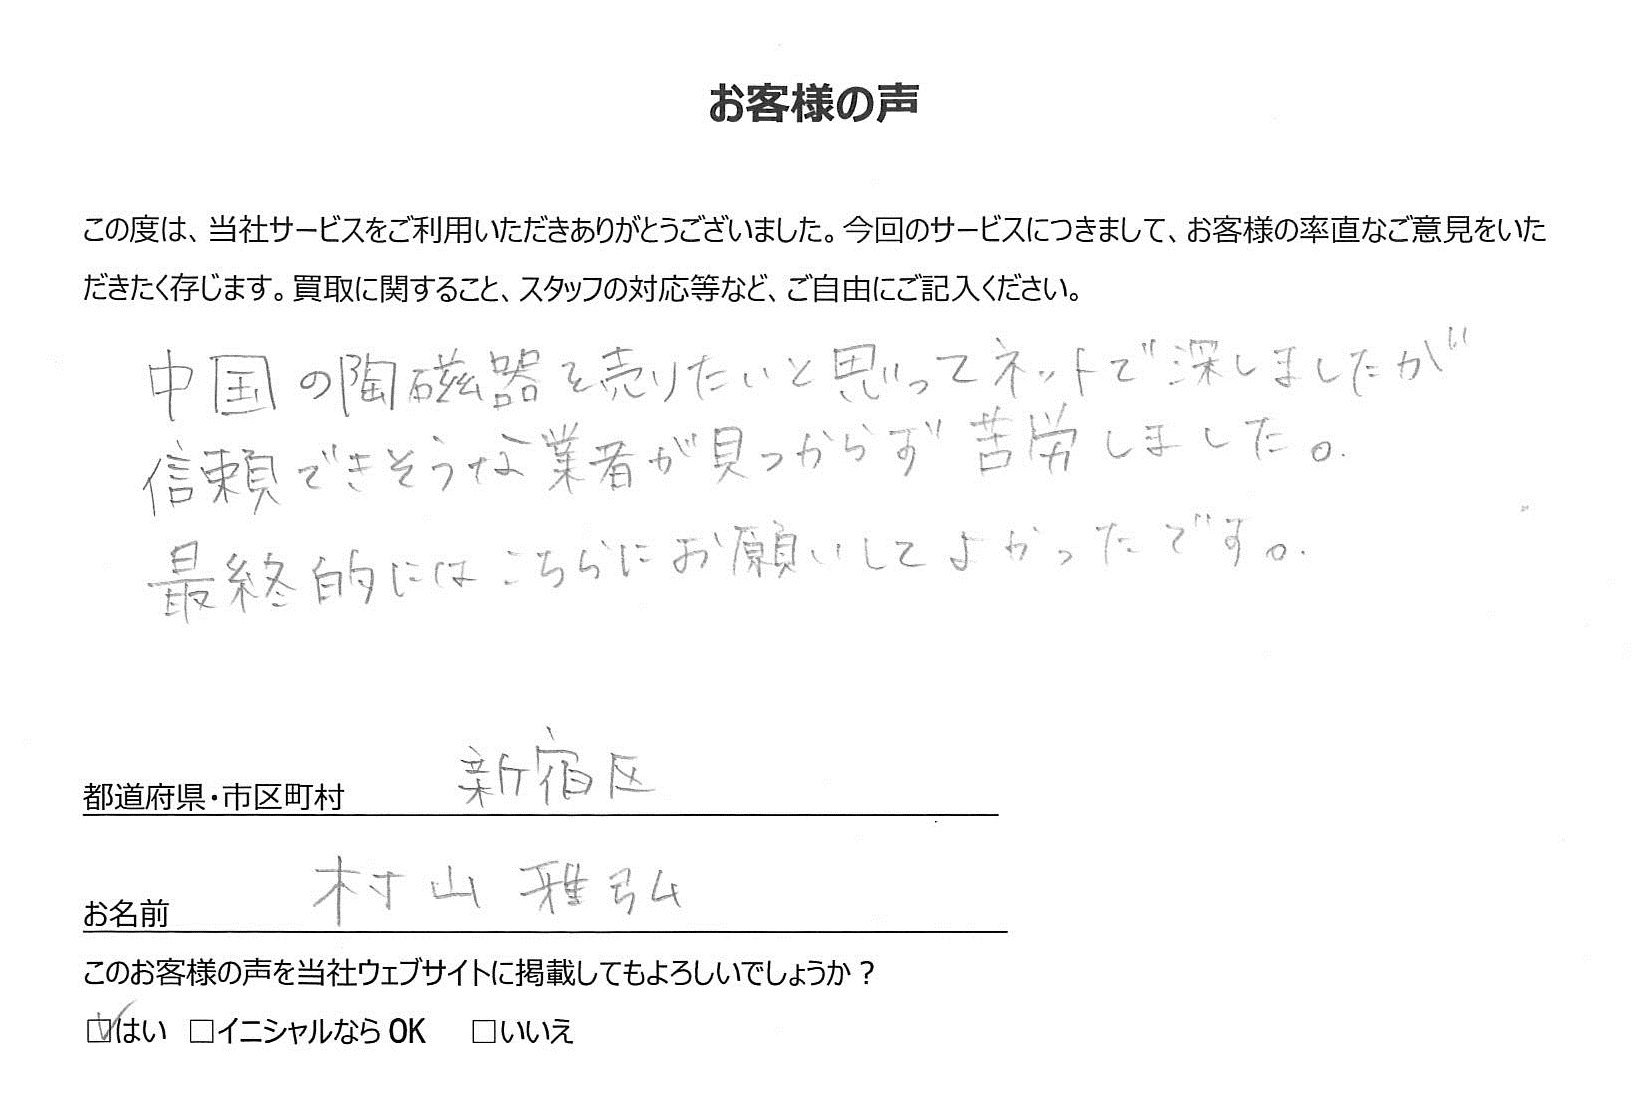 お客様の声
この度は、当社サービスをご利用いただきありがとうございました。今回のサービスにつきまして、お客様の率直なご意見をいた
だきたく存じます。買取に関すること、スタッフの対応等など、ご自由にご記入ください。
中国の陶磁器を売りたいと思ってネットで深しましたが
信頼できそうな業者が見つからず苦労しました。
最終的にはこちらにお願いしてよかったです。
都道府県・市区町村 新宿区
お名前 村山 雅弘
このお客様の声を当社ウェブサイトに掲載してもよろしいでしょうか？
☑はい □イニシャルならOK □いいえ